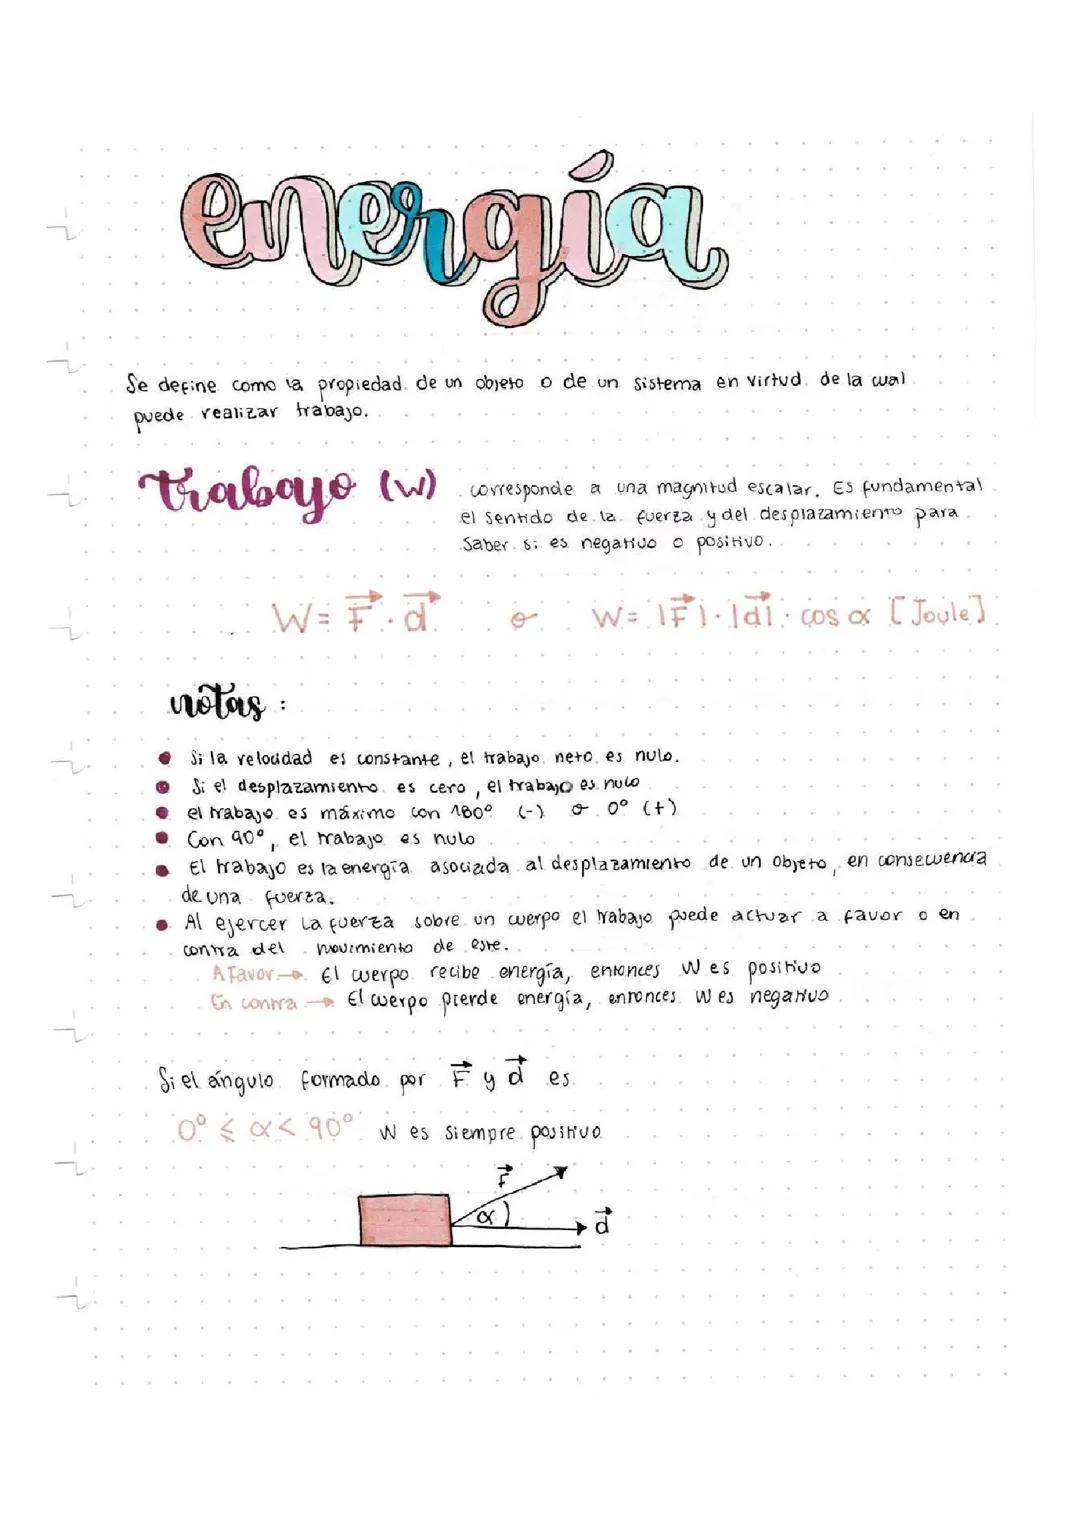 energía
Se define como la propiedad de un objeto o de un sistema en virtud de la cual
puede realizar trabajo.
trabajo (W)
corresponde a una magnitud escalar. Es fundamental
el sentido de la fuerza y del desplazamiento para
saber si es negativo o positivo.
W = F⃗ · d⃗ o W = |F⃗| · |d⃗| · cos α [Joule]
notas :
• Si la velocidad es constante, el trabajo neto es nulo.
• Si el desplazamiento es cero, el trabajo es nulo
• el trabajo es máximo con 180° (-) o 0° (+)
• Con 90°, el trabajo es nulo
• El trabajo es la energía asociada al desplazamiento de un objeto, en consecuencia
de una fuerza.
• Al ejercer la fuerza sobre un cuerpo el trabajo puede actuar a favor o en
contra del movimiento de este.
A Favor → El cuerpo recibe energía, entonces W es positivo
En contra → El cuerpo pierde energía, entonces W es negativo
Si el ángulo formado por F⃗ y d⃗ es
0° ≤ α < 90° W es siempre positivo
F⃗
α
d⃗